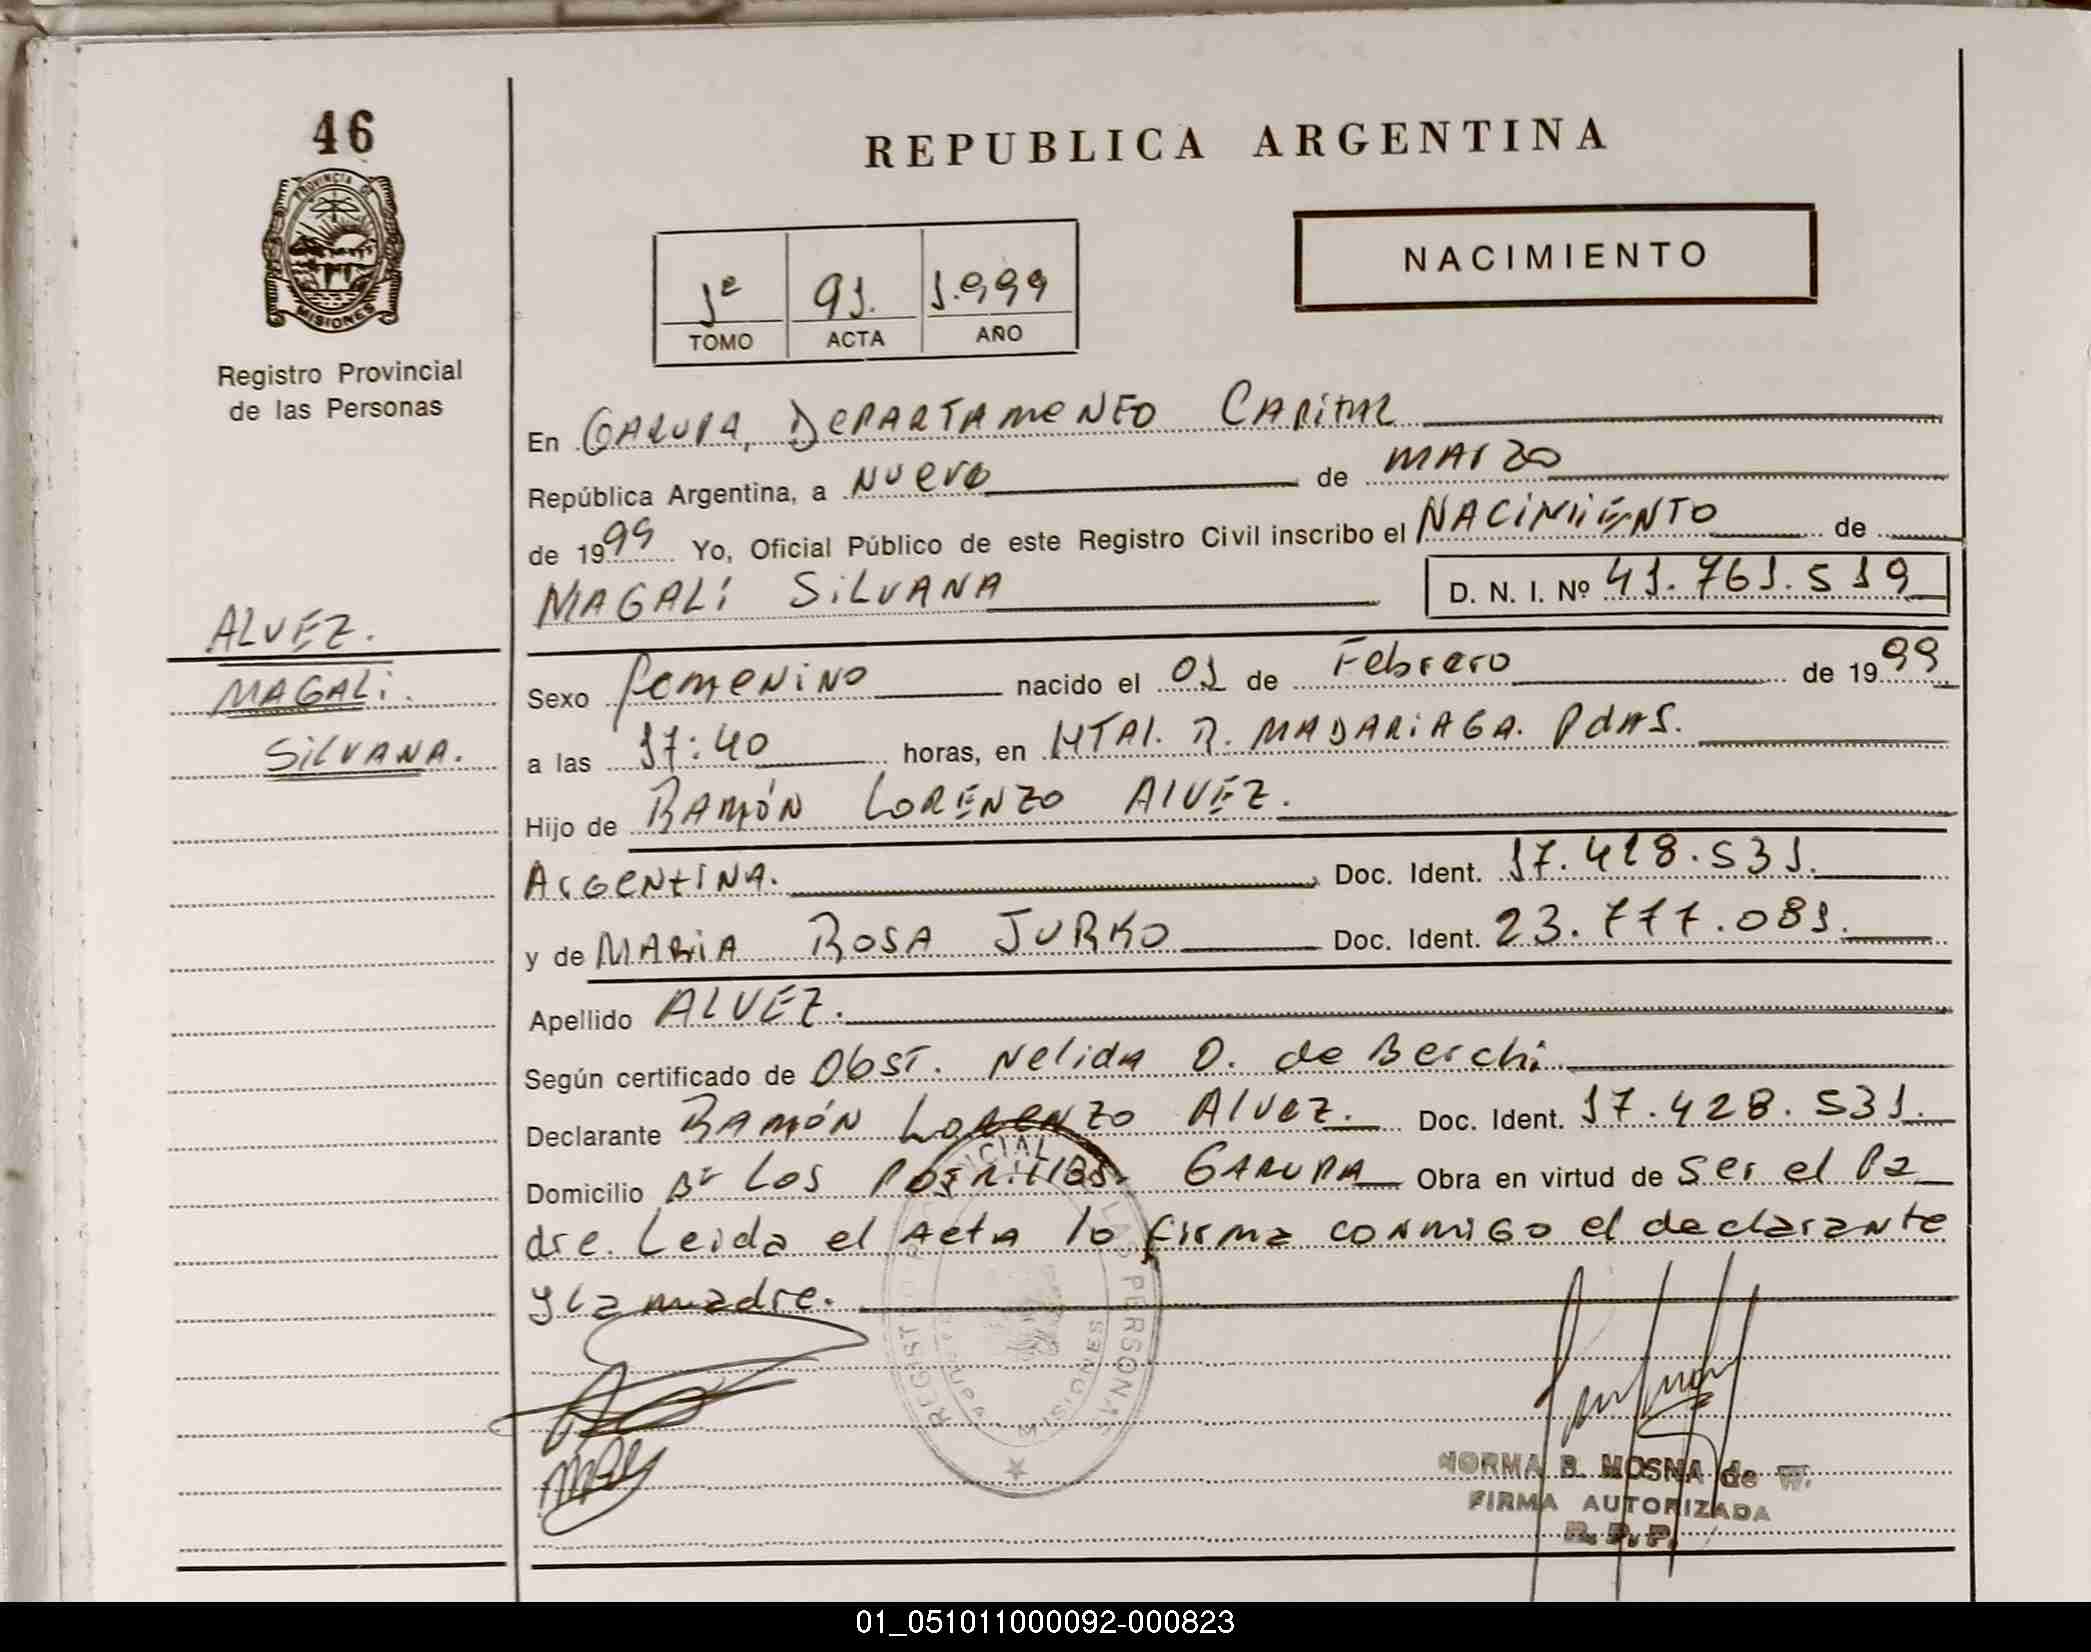 46
PROVINCIA DE
MISIONES
Registro Provincial
de las Personas
REPUBLICA ARGENTINA
NACIMIENTO
1º 91. 1.999
TOMO ACTA AÑO
En GARUPA, DEPARTAMENTO CAPITAL
República Argentina, a NUEVE de MARZO
de 1999 Yo, Oficial Público de este Registro Civil inscribo el NACIMIENTO de
MAGALI SILVANA D. N. I. Nº 41.761.519
ALVEZ.
MAGALI.
SILVANA.
Sexo femenino nacido el 01 de Febrero de 1999
a las 17:40 horas, en HTAL. R. MADARIAGA. PdAS.
Hijo de RAMÓN LORENZO ALVEZ.
ARGENTINA. Doc. Ident. 17.428.531.
y de MARIA ROSA JURKO Doc. Ident. 23.777.081.
Apellido ALVEZ.
Según certificado de Obst. Nelida O. de Berchi
Declarante RAMÓN LORENZO Alvez. Doc. Ident. 17.428.531.
Domicilio Bº Los POTRILLOS. GARUPA Obra en virtud de ser el Pa
dre. Leida el Acta lo firma conmigo el declarante
y la madre.
REGISTRO PROVINCIAL DE LAS PERSONAS
MISIONES
NORMA B. MOSNA de W.
FIRMA AUTORIZADA
R. P. P.
01_051011000092-000823